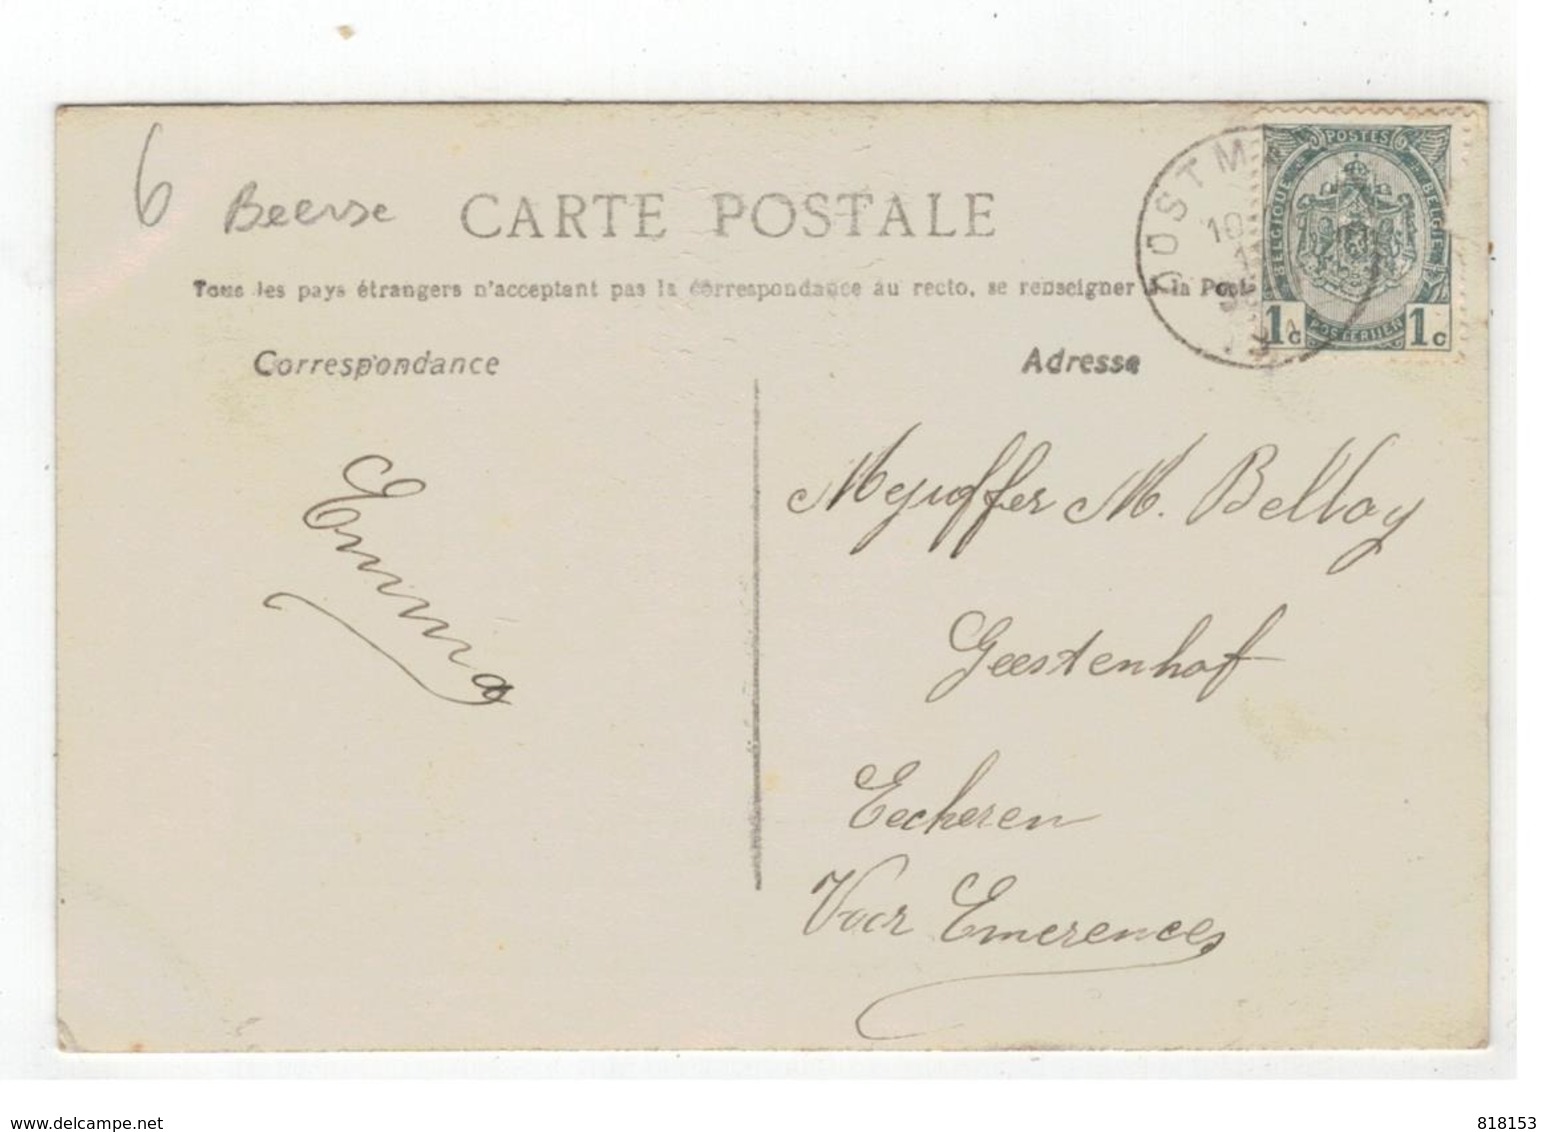 6
Beerse
CARTE POSTALE
Tous les pays étrangers n'acceptant pas la correspondance au recto, se renseigner à la Poste
Correspondance
Adresse
OOSTM
10
POSTES
BELGIQUE
BELGIE
POSTERIJEN
1c 1c
Emma
Mejuffer M. Belloy
Geestenhof
Eecheren
Voor Emerences
www.delcampe.net
818153